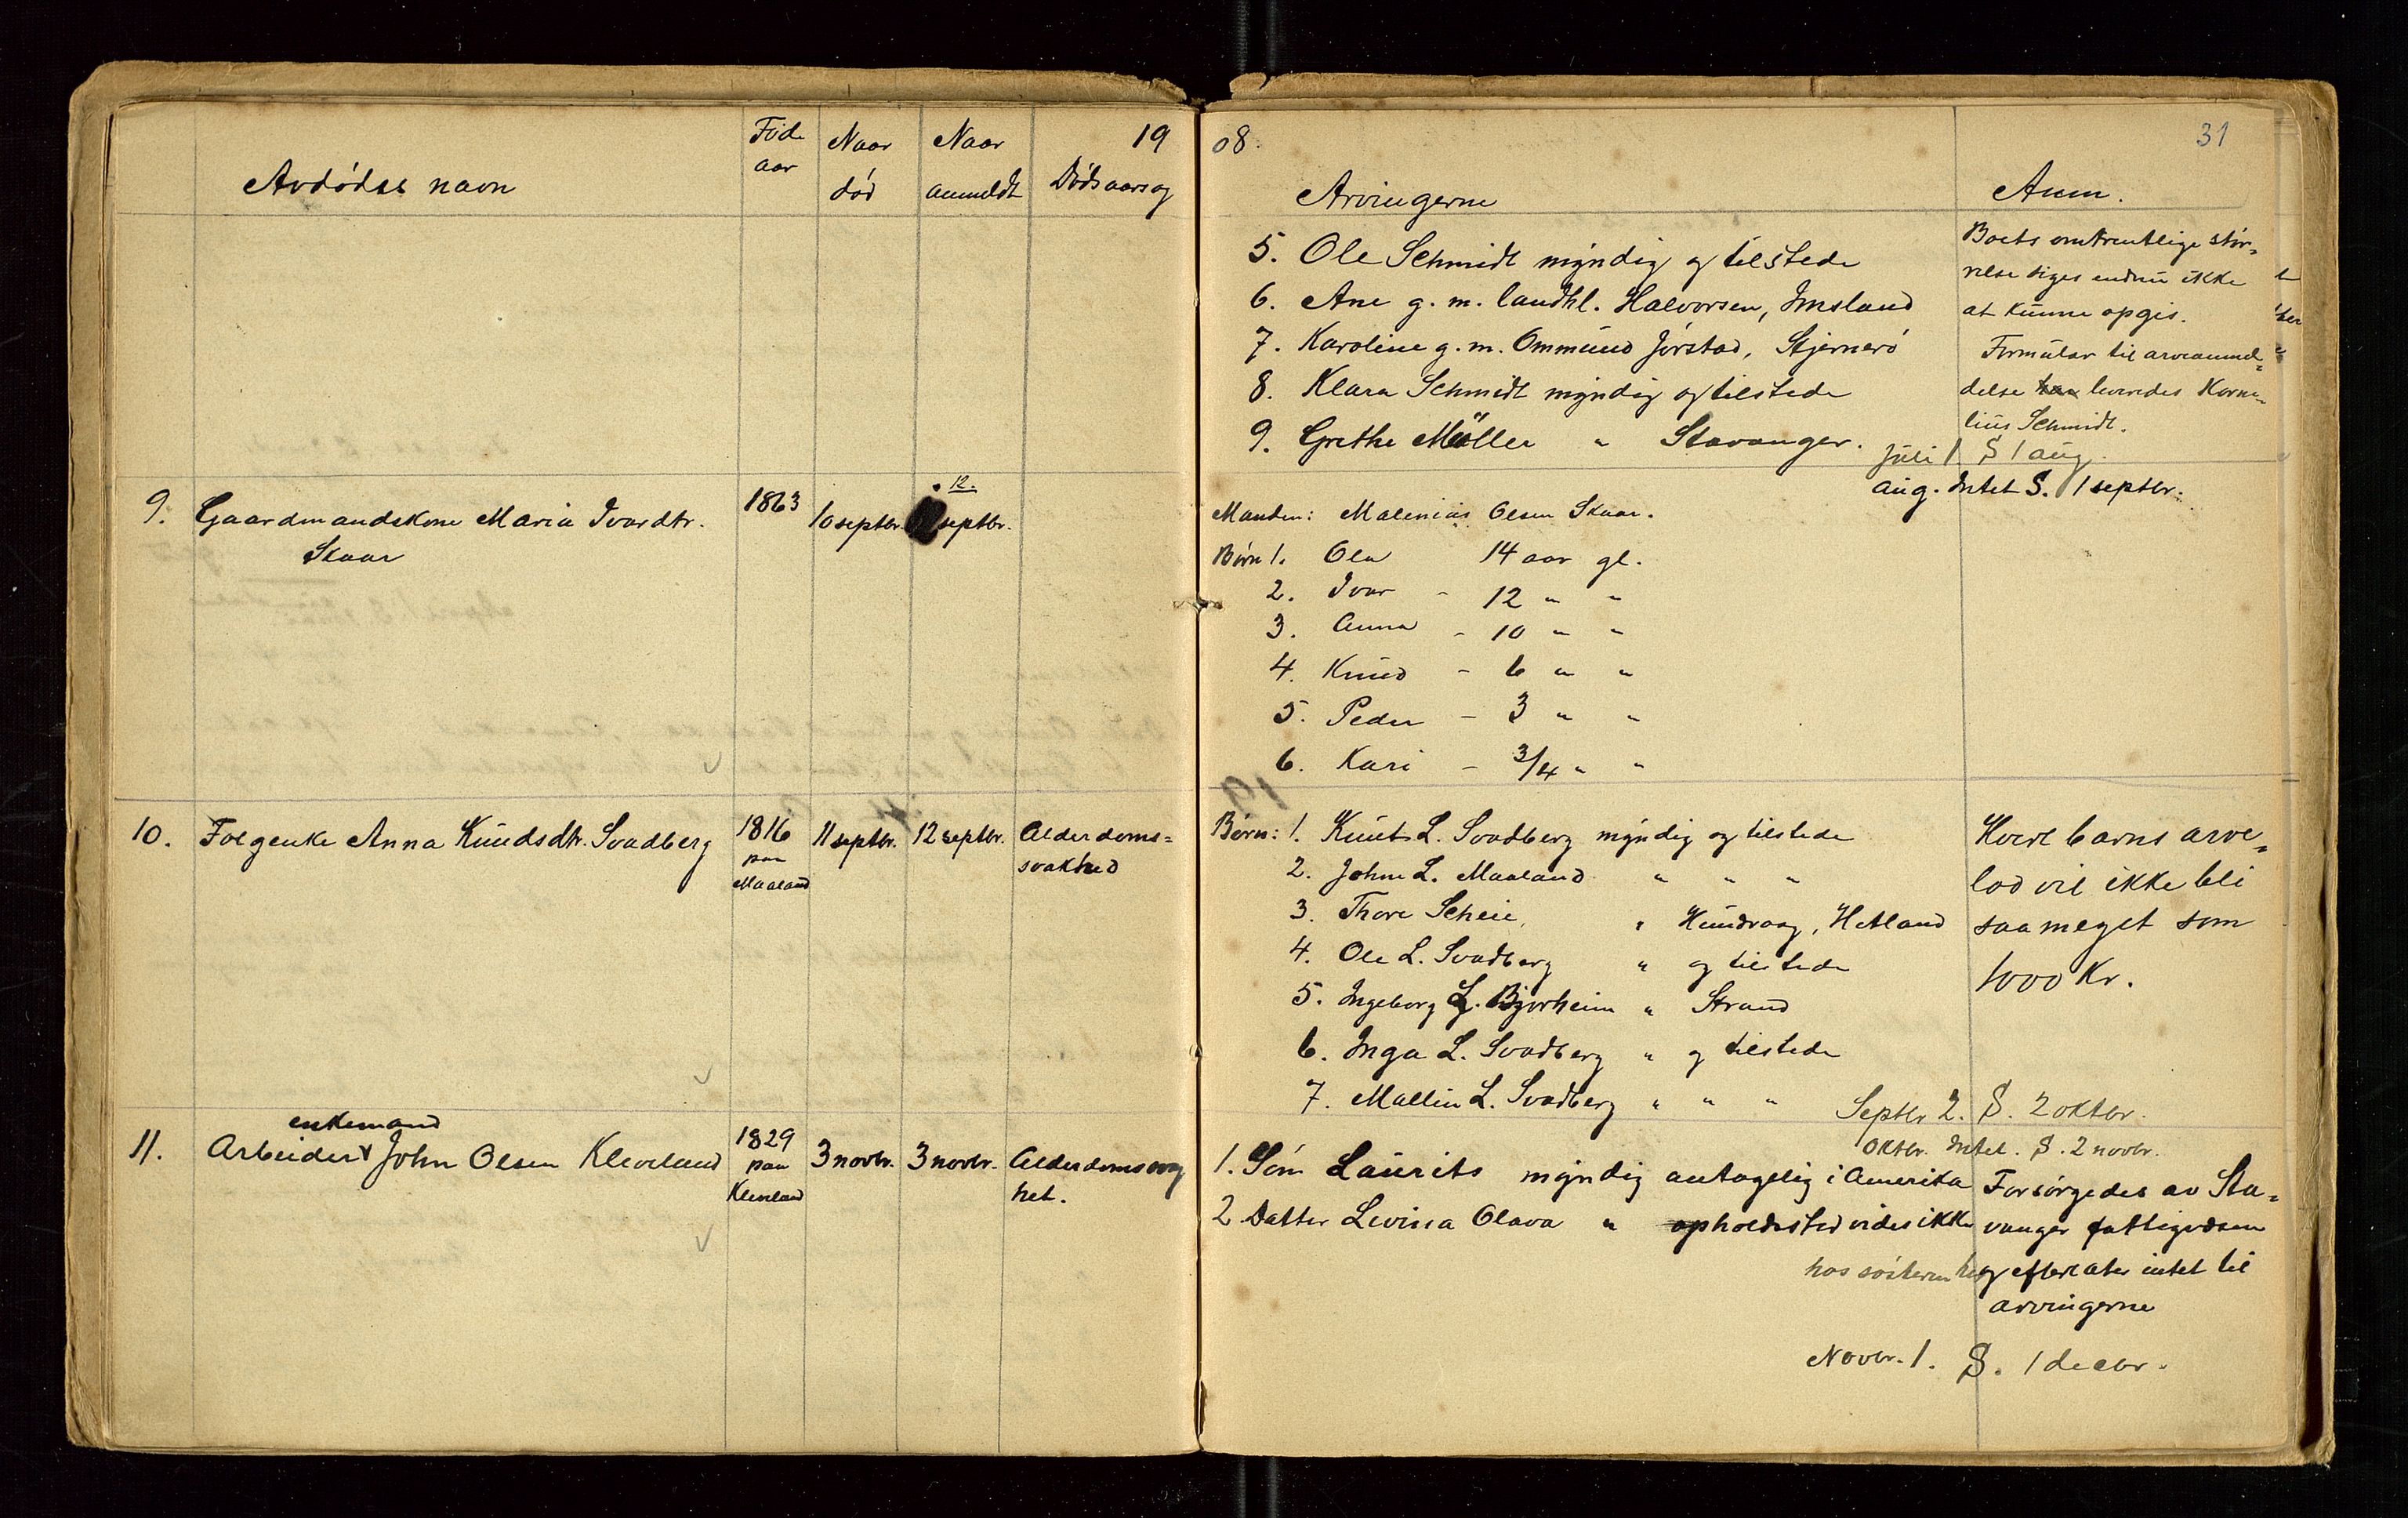 19
08.
31
Avdødes navn
Føde aar
Naar død
Naar anmeldt
Dødsaarsag
Arvingerne
Anm.
5. Ole Schmidt myndig og tilstede
6. Ane g. m. landhl. Halvorsen, Imsland
7. Karoline g. m. Ommund Jørstad, Stjernerö
8. Klara Schmidt myndig og tilstede
9. Grethe Møller " Stavanger.
Boets omtrentlige stør-
relse siges endnu ikke
at kunne opgis.
Formular til arveanmel-
delse leveredes Korne-
lius Schmidt.
Juli 1 S 1 aug.
Aug. Intet S. 1 septbr.
9. Gaardmandskone Maria Ivardtr.
Skaar
1863
10 septbr.
12.
septbr.
Manden: Malenius Olsen Skaar.
Børn 1. Ola 14 aar gl.
2. Ivar - 12 " "
3. Anna - 10 " "
4. Knud - 6 " "
5. Peder - 3 " "
6. Kari - 3/4 " "
10. Folgenke Anna Knudsdtr. Svadberg
1816
paa
Maaland
11 septbr.
12 septbr.
Alderdoms=
svakhed
Børn: 1. Knut L. Svadberg myndig og tilstede
2. John L. Maaland " " "
3. Thore Scheie, " Hundvaag, Hetland
4. Ole L. Svadberg " og tilstede
5. Ingeborg L. Bjørheim " Strand
6. Inga L. Svadberg " og tilstede
7. Mallin L. Svadberg " " "
Hvert barns arve=
lod vil ikke bli
saa meget som
1000 Kr.
Septbr 2. S. 2 oktbr.
Oktbr. Intet. S. 2 novbr.
enkemand
11. Arbeider v John Olsen Kleveland
1829
paa
Kleveland
3 novbr.
3 novbr.
Alderdomssvag
het.
1. Søn Laurits myndig antagelig i Amerika
2 Datter Lovisa Olava " opholdssted vides ikke
hos søsteren
Forsørgedes av Sta=
vanger fattigvæsen
og efterlater intet til
arvingerne
Novbr. 1. S. 1 decbr.